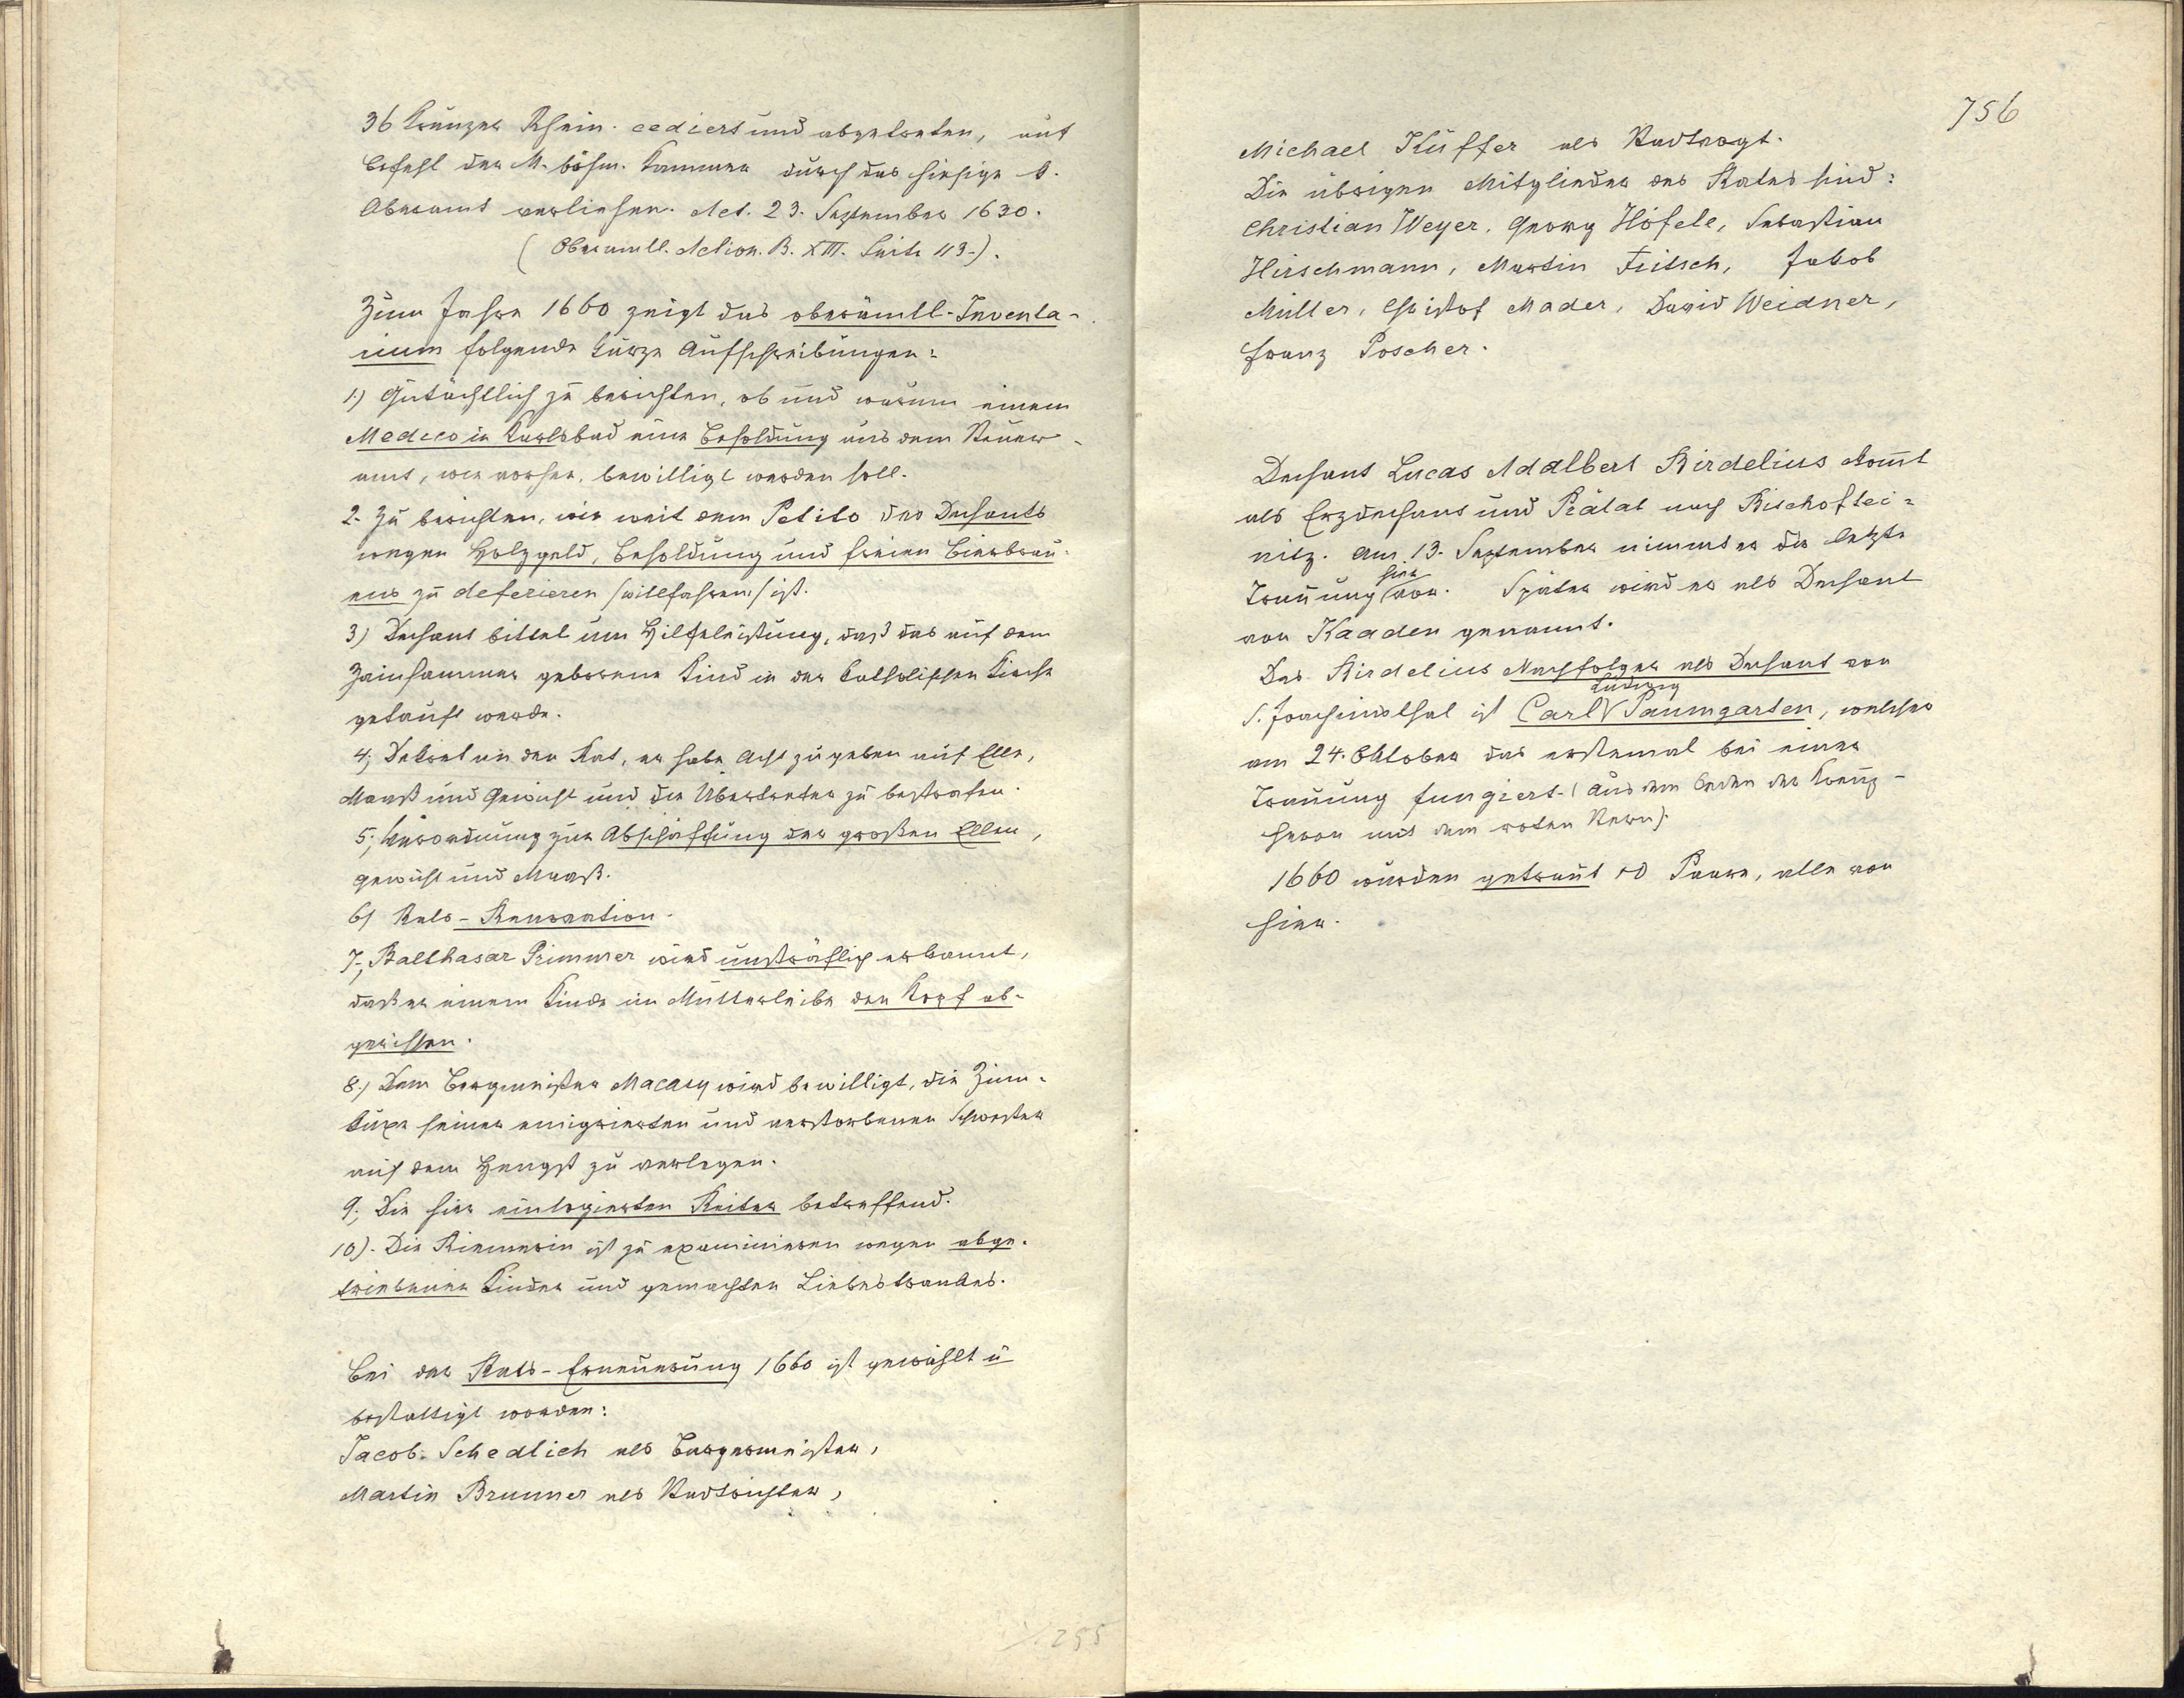 36 Kreuzer Rhein. cediert und abgetreten, auf
Befehl der K. böhm. Kammer durch das hiesige k.
Oberamt verliehen. Act. 23. September 1630.
(Oberamtl. Action. B. XIII. Seite 113.).
Zum Jahre 1660 zeigt das oberämtl. Inventa-
rium folgende kurze Aufschreibungen:
1.) Gutächtlich zu berichten, ob und warum einem
Medico in Karlsbad eine Besoldung aus dem Steuer-
amt, wie vorher, bewilligt werden soll.
2. Zu berichten, wie weit dem Petito des Dechants
wegen Holzgeld, Besoldung und freien Bierbräu-
ens zu deferieren /willfahren/ ist.
3) Dechant bittet um Hilfeleistung, daß das auf dem
Zainhammer geborene Kind in der katholischen Kirche
getauft werde.
4; Dekret an den Rat, er habe Acht zu geben auf Elle,
Maaß und Gewicht und die Übertreter zu bestrafen.
5; Verordnung zur Abschaffung der großen Ellen,
Gewicht und Maaß.
6) Rats-Renovation.
7; Balthasar Primmer wird unsträflich erkannt,
daß er einem Kinde im Mutterleibe den Kopf ab-
gerissen.
8.) Dem Bergmeister Macasy wird bewilligt, die Zinn-
kuxe seiner emigrierten und verstorbenen Schwester
auf dem Hengst zu verlegen.
9; Die hier einlogierten Reiter betreffend.
10). Die Riemerin ist zu examinieren wegen abge-
triebener Kinder und gemachten Liebestrankes.
Bei der Rats-Erneuerung 1660 ist gewählt u
bestattigt worden:
Jacob Schedlich als Burgermeister,
Martin Brunner als Stadtrichter,
255
756
Michael Küffer als Stadtvogt.
Die übrigen Mitglieder des Rates sind:
Christian Weyer, Georg Höfele, Sebastian
Hirschmann, Martin Fritsch, Jakob
Müller, Christof Mader, David Weidner,
Franz Poscher.
Dechant Lucas Adalbert Birdelius kom̄t
als Erzdechant und Prälat nach Bischoftei-
nitz. Am 13. September nimmt er die letzte
Trauung hier vor. Später wird er als Dechant
von Kaaden genannt.
Des Birdelius Nachfolger als Dechant von
S. Joachimsthal ist Carl Ludwig Paumgarten, welcher
am 24. Oktober das erstemal bei einer
Trauung fungiert. (Aus dem Orden der Kreuz-
herren mit dem roten Stern).
1660 wurden getraut 10 Paare, alle von
hier.